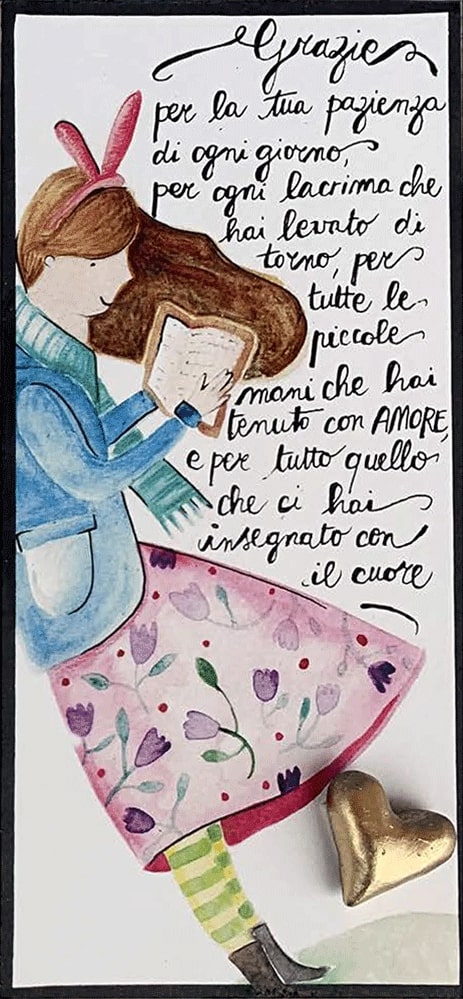 Grazie
per la tua pazienza
di ogni giorno,
per ogni lacrima che
hai levato di
torno, per
tutte le
piccole
mani che hai
tenuto con AMORE,
e per tutto quello
che ci hai
insegnato con
il cuore